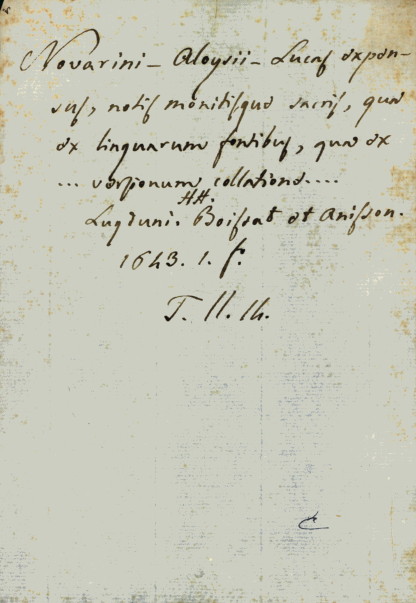 Novarini - Aloysii - Lucas expen-
sus, notis monitisque sacris, qua
ex linguarum fontibus, qua ex
... versionum collatione....
HH.
Lugduni. Boissat et Anisson.
1643. 1. f.
T. II. th.